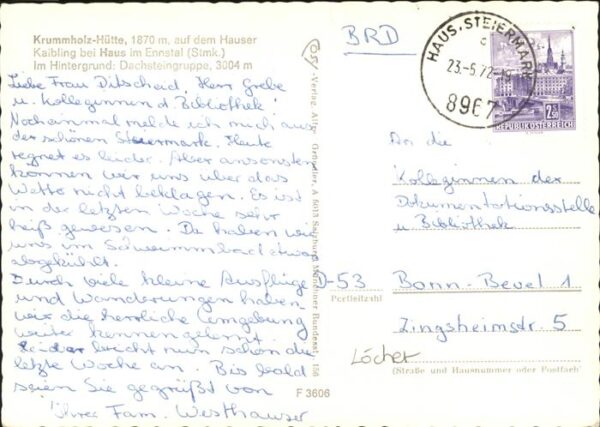 Krummholz-Hütte, 1870 m, auf dem Hauser
Kaibling bei Haus im Ennstal (Stmk.)
Im Hintergrund: Dachsteingruppe, 3004 m
Liebe Frau Ditscheid, Herr Grebe
u. Kolleginnen d. Bibliothek!
Nocheinmal melde ich mich aus
der schönen Steiermark. Heute
regnet es leider. Aber ansonsten
können wir uns über das
Wetter nicht beklagen. Es ist
in der letzten Woche sehr
heiß gewesen. Da haben wir
uns im Schwimmbad etwas
abgekühlt.
Durch viele kleine Ausflüge
und Wanderungen haben
wir die herrliche Umgebung
weiter kennen gelernt.
Leider bricht nun schon die
letzte Woche an. Bis bald
seien Sie gegrüßt von
Ihrer Fam. Westhauser
-Verlag, Alfr. Gründler, A 5013 Salzburg, Münchner Bundesstr. 156
F 3606
BRD
HAUS, STEIERMARK
23.-6.72-
8967
2.50
REPUBLIK ÖSTERREICH
An die
Kolleginnen der
Dokumentationsstelle
u. Bibliothek
D-53 Bonn-Beuel 1
Postleitzahl
Zingsheimstr. 5
Löcher
(Straße und Hausnummer oder Postfach)